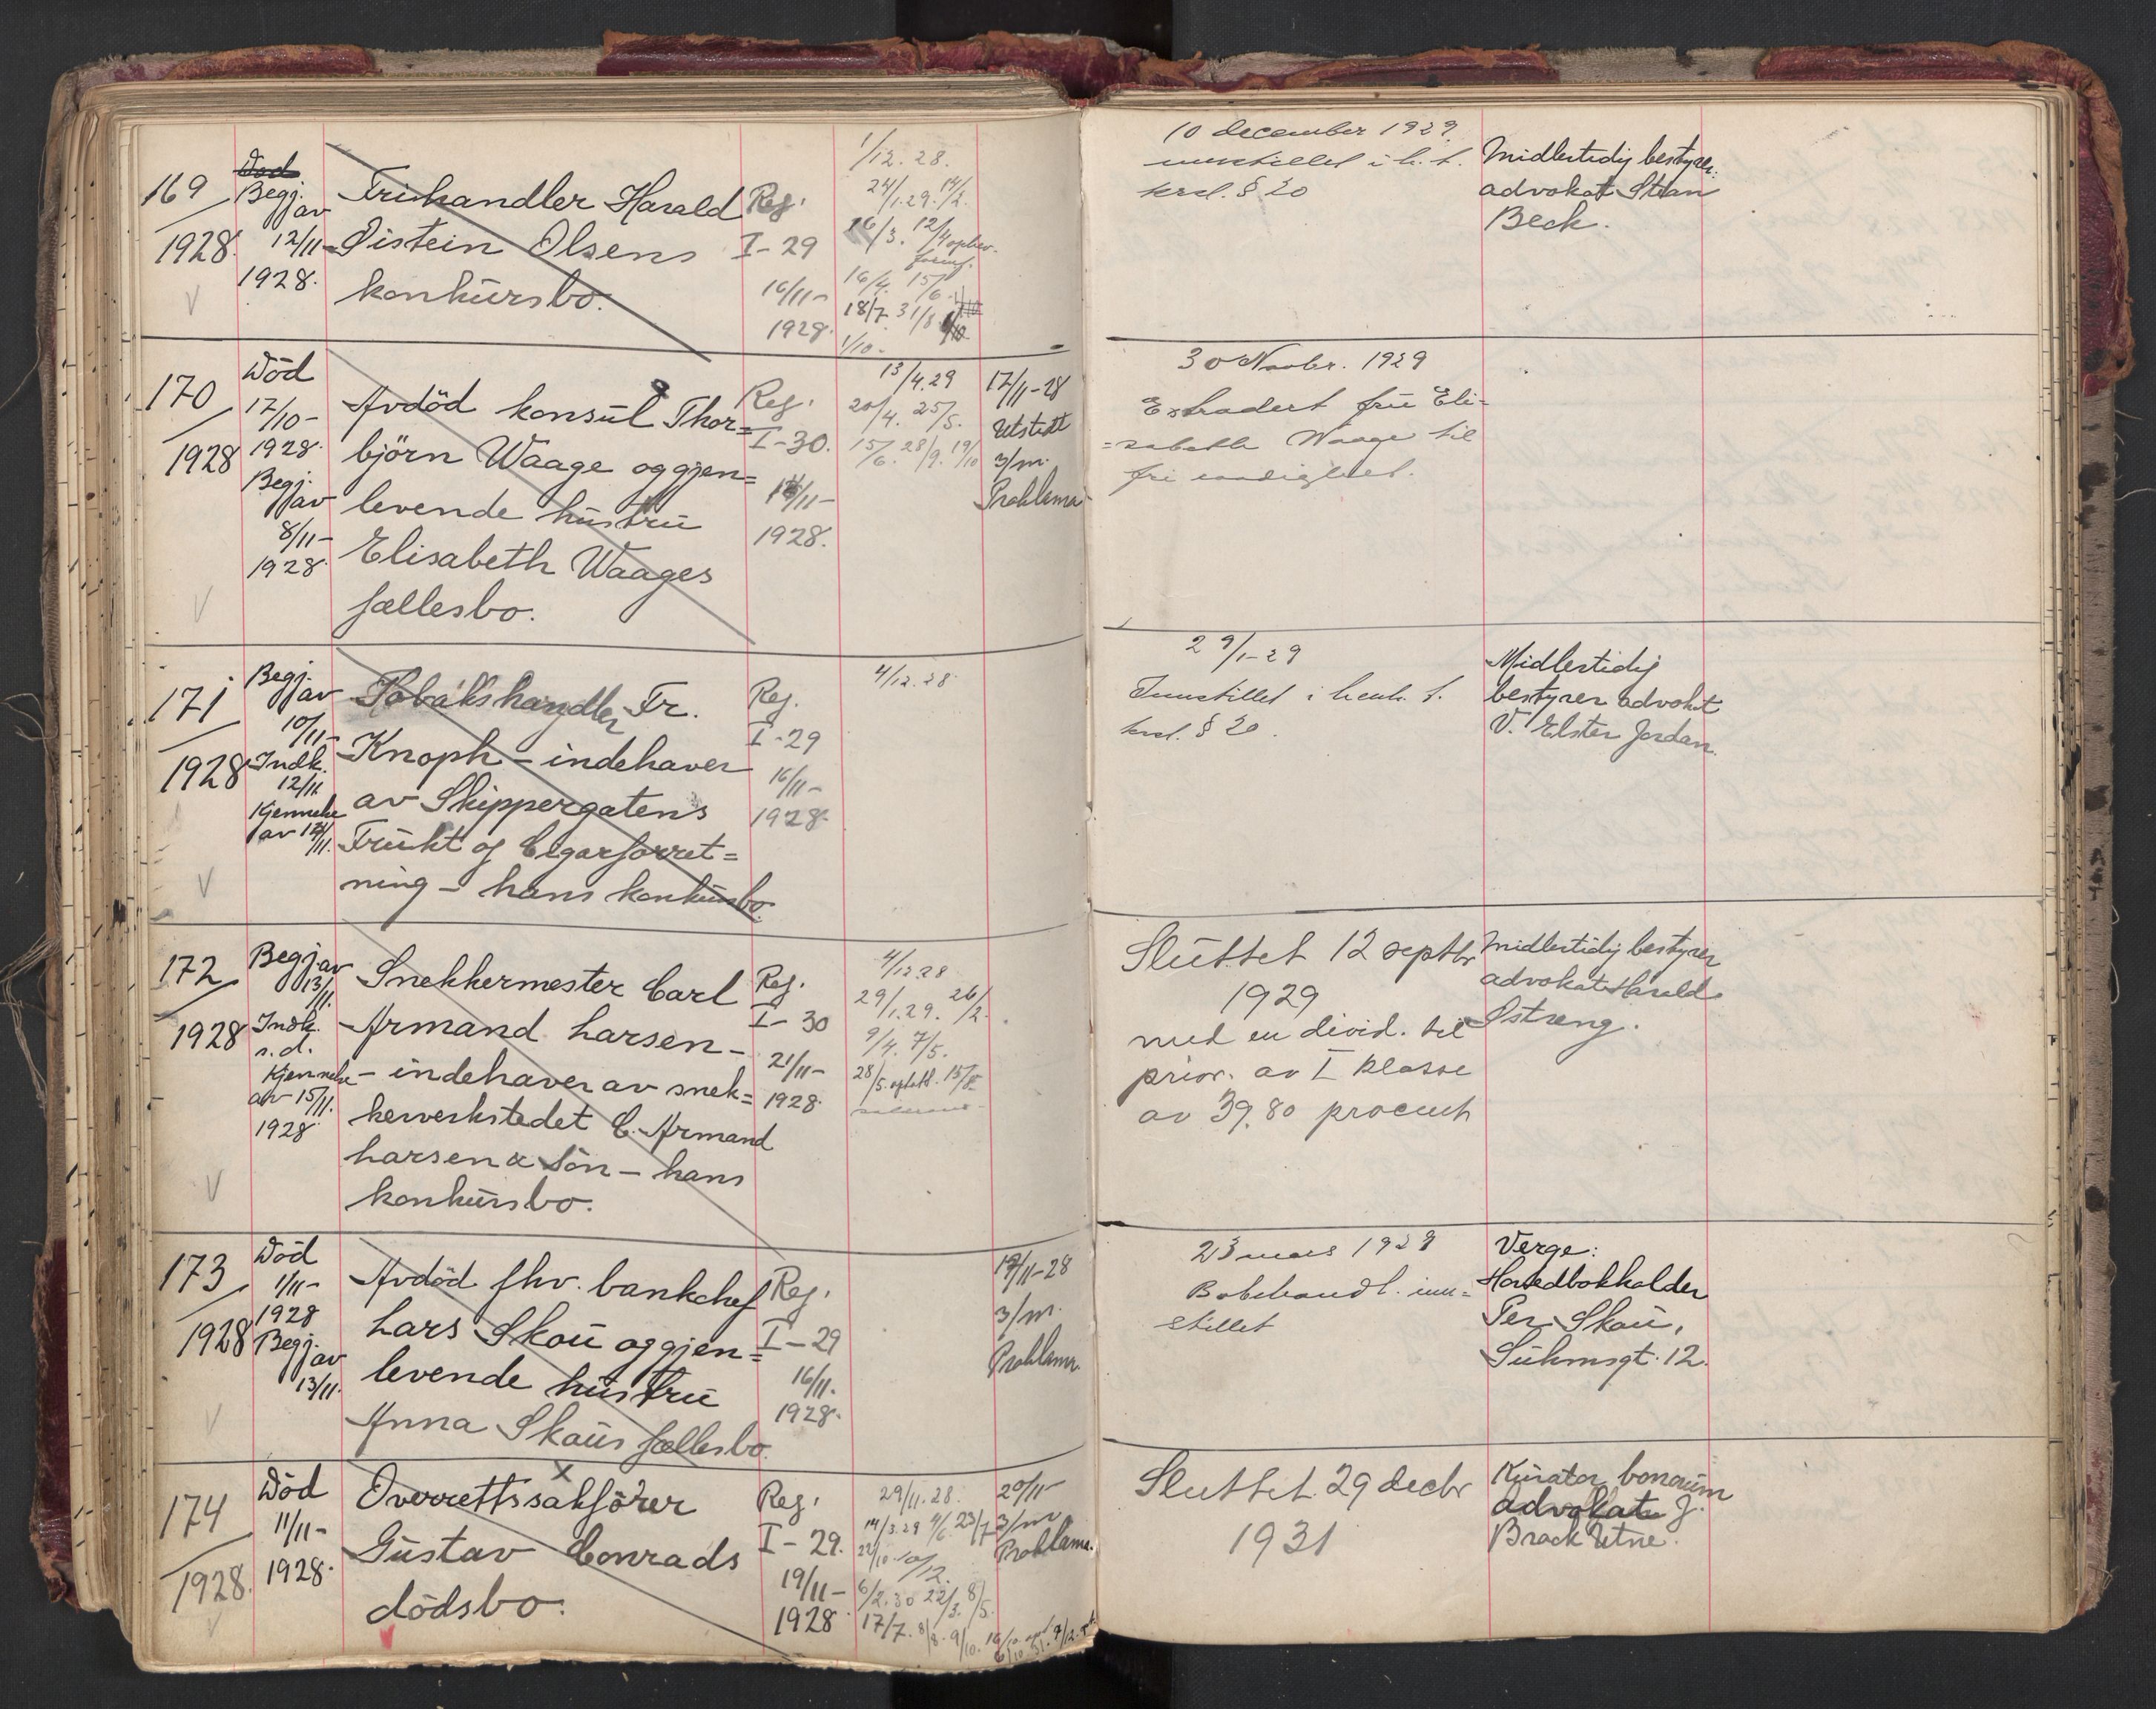 169
1928.
Død
Begj.
av
12/11-
1928.
Trikandler Harald
Øistein Olsens
konkursbo.
Reg.
I-29
16/11-
1928.
1/12.28.
24/1.29. 14/2.
16/3. 12/4 ophev.
16/4. 15/6.
18/7. 31/8.
1/10-
10 december 1929
innstillet i h. t.
krsl. § 20
Midlertidig bestyrer:
advokat Stan
Beck.
170
1928
Död
17/10-
1928.
Begj.
av
8/11-
1928.
Avdöd konsul Thor=
björn Waage og gjen=
levende hustru
Elisabeth Waages
fællesbo.
Reg.
I-30.
14/11-
1928.
13/4.29
20/4. 25/5.
15/6. 28/9. 19/10
17/11-28
Utstedt
3/m.
Proklama
30 Novbr. 1929
Extradert fru Eli=
=sabeth Waage til
fri raadighet.
171
1928
Begj.
av
10/11-
Indk.
12/11
Kjennelse
av 12/11.
Tobakshandler Fr.
Knoph - indehaver
av Skippergatens
Frukt og Cigarforret=
ning - hans konkursbo.
Reg.
I-29
16/11-
1928.
4/12.28
29/1-29
Innstillet i henh. t.
krsl. § 20.
Midlertidig
bestyrer advokat
V. Elster Jordan.
172
1928
Begj. av
13/11.
Indk.
s.d.
Kjennelse
av 15/11.
1928
Snekkermester Carl
Armand Larsen -
- indehaver av snek=
kerverkstedet C. Armand
Larsen & Sön - hans
konkursbo.
Reg.
I-30
21/11-
1928.
4/12.28
29/1.29. 26/2.
9/4. 7/5.
28/5. 15/8
Sluttet 12 septbr
1929
med en divid. til
prior. av I klasse
av 39.80 procent
Midlertidig bestyrer
advokat Harald
Østreng.
173
1928
Död
1/11-
1928
Begj.
av
13/11.
Avdöd fhv. bankchef
Lars Skou og gjen=
levende hustru
Anna Skous fællesbo.
Reg.
I-29
16/11.
1928.
19/11-28
3/m.
Proklama.
23 mars 1929
Bobehandl. inn=
stillet
Verge:
Hovedbokholder
Per Skou,
Suhmsgt. 12.
174
1928.
Död
11/11-
1928.
Overrettssakförer
Gustav Conrads
dödsbo.
Reg.
I-29.
19/11-
1928
29/11.28.
14/3.29 4/6. 23/7
22/10. 10/12.
6/2.30 22/3. 8/5.
17/7. 8/8. 9/10.
20/11-
3/m
Proklama.
Sluttet 29 decbr
1931
Kurator bonorum
advokat J.
Brock Utne.